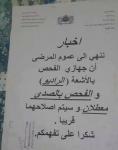 اخبار
ننهي الى عموم المرضى
أن جهازي الفحص
بالأشعة (الراديو)
و الفحص بالصدى
معطلان و سيتم اصلاحهما
قريبا .
شكرا على تفهمكم.